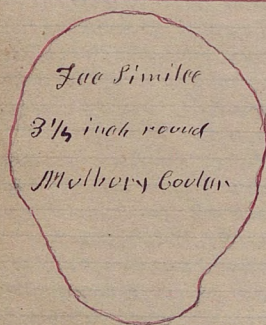 Fac Similee
3 1/2 inch round
Mulbory Coolar